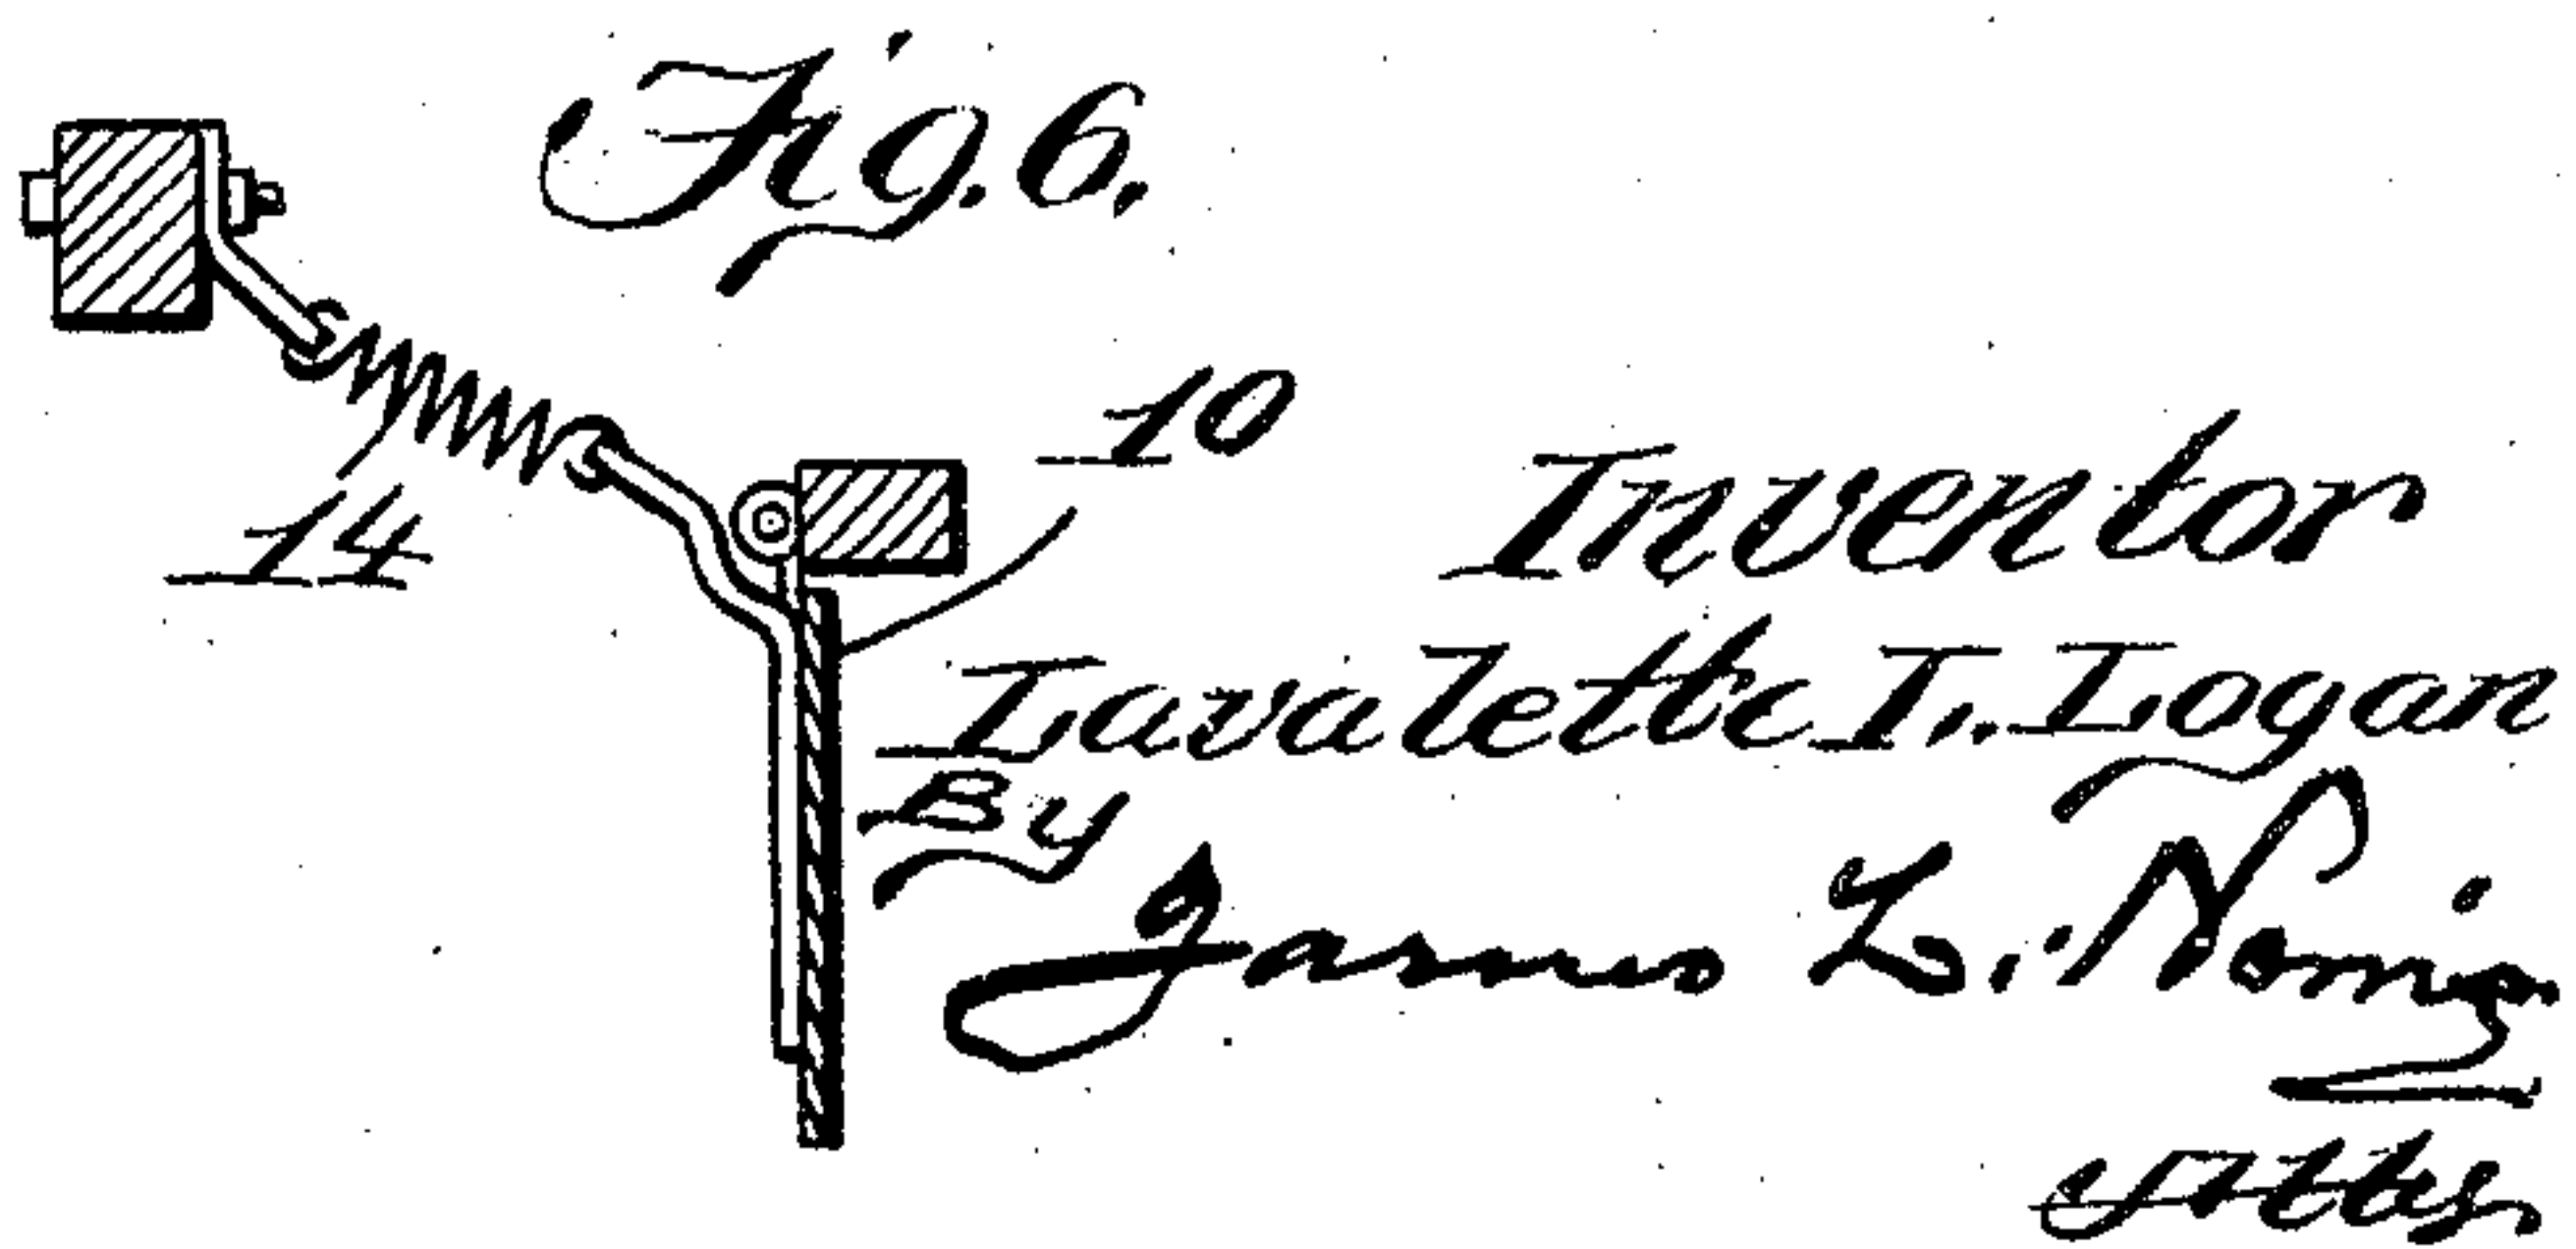 Fig. 6.
10
14
Inventor
Lavalette L. Logan
By
James L. Norris
Atty.